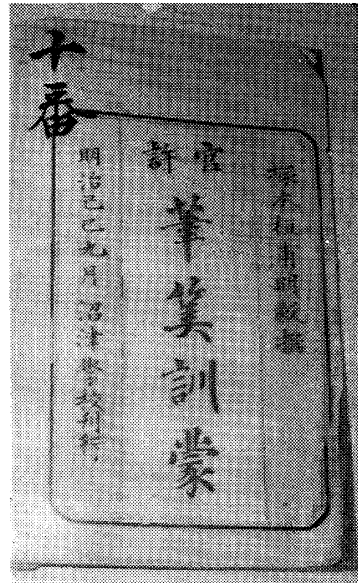 十番
塚本桓甫明毅撰
官許
筆筭訓蒙
明治己巳九月沼津學校